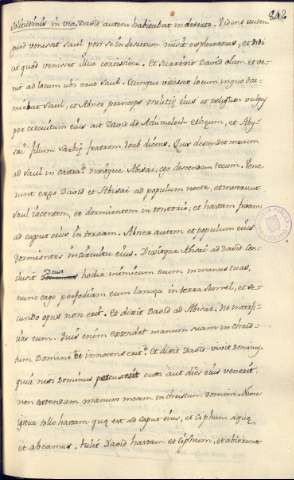 242
solitudinis in via. David autem habitabat in deserto. Videns autem
quod venisset Saul post se in desertum misit exploratores, et didi
cit quod venisset illuc certissime. Et surrexit David clam et ve-
nit ad locum ubi erat Saul. Cumque vidisset locum in quo dor-
miebat Saul, et Abner princeps militiæ eius et reliquum vulgus
per circuitum eius ait David ad Achimelech etheum, et Aby-
sai filium sarviæ fratrem Ioab dicens. Quis descendet mecum
ad Saul in castra? dixitque Abisai, ego descendam tecum. Vene
runt ergo David et Abisai ad populum nocte, et invenerunt
Saul iacentem, et dormientem in tentorio, et hastam fixam
ad caput eius in terram. Abner autem et populum eius
dormientes in circuitu eius. Dixitque Abisai ad David con-
clusit Deus hodie inimicum tuum in manus tuas,
nunc ergo perfodiam eum lancea in terra semel, et se-
cundo opus non erit. Et dixit David ad Abisai. Ne interfi-
cias eum. Quis enim extendet manum suam in chris-
tum Domini et innocens erit? Et dixit David. vivit Dominus
quia nisi Dominus percusserit eum aut dies eius venerit
non extendam manum meam in christum Domini. Nunc
igitur tolle hastam quæ est ad caput eius, et ciphum aquæ
et abeamus. tulit David hastam et ciphum, et abierunt